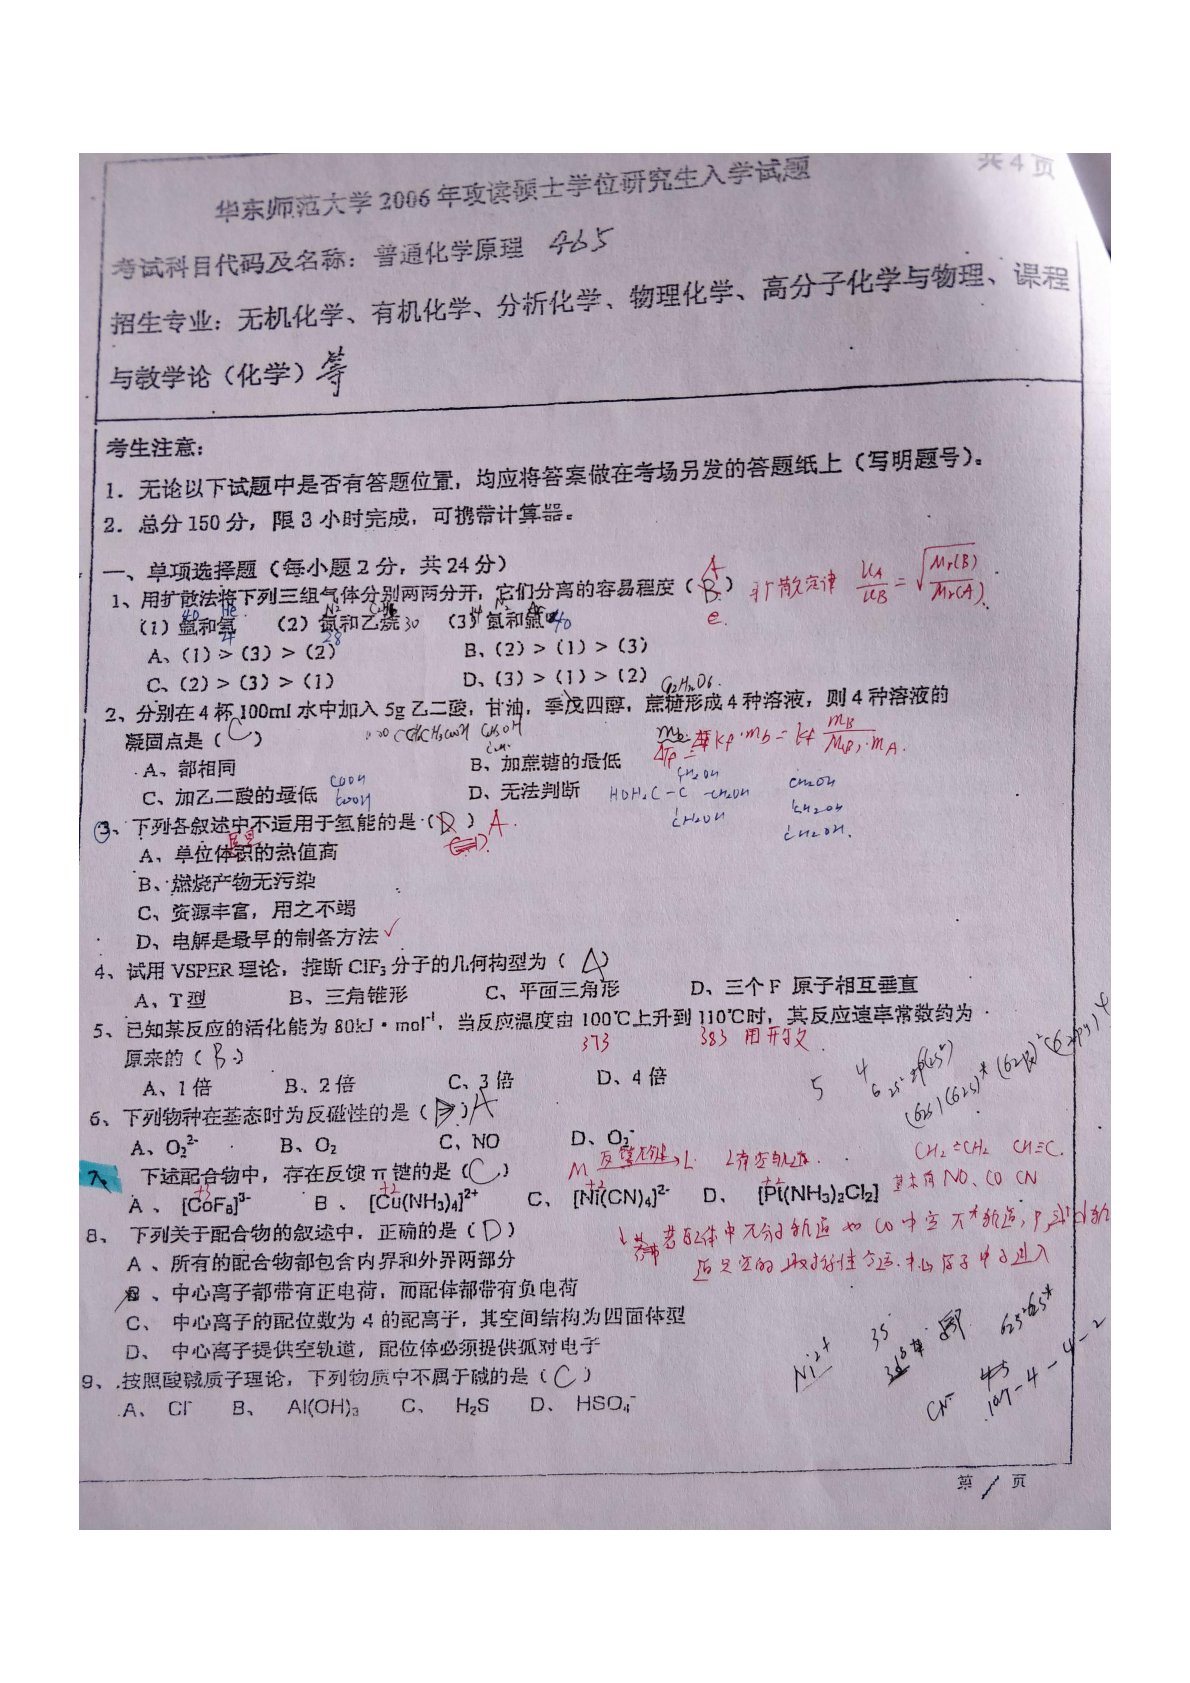 共4页
华东师范大学2006年攻读硕士学位研究生入学试题
考试科目代码及名称：普通化学原理 465
招生专业：无机化学、有机化学、分析化学、物理化学、高分子化学与物理、课程
与教学论（化学）等
考生注意：
1．无论以下试题中是否有答题位置，均应将答案做在考场另发的答题纸上（写明题号）。
2．总分150分，限3小时完成，可携带计算器。
一、单项选择题（每小题2分，共24分）
1、用扩散法将下列三组气体分别两两分开，它们分离的容易程度（B） A 扩散定律 uA/uB = √Mr(B)/Mr(A)
40 He N2 28 30 40
（1）氩和氦 （2）氮和乙烷 （3）氮和氩
A、（1）＞（3）＞（2） B、（2）＞（1）＞（3）
C、（2）＞（3）＞（1） D、（3）＞（1）＞（2）
2、分别在4杯100ml水中加入5g乙二酸，甘油，季戊四醇，蔗糖形成4种溶液，则4种溶液的
凝固点是（C）
A、都相同 B、加蔗糖的最低
C、加乙二酸的最低 COOH COOH D、无法判断 HOH2C-C-CH2OH CH2OH CH2OH
3、下列各叙述中不适用于氢能的是（B） A.
A、单位体积的热值高 质量
B、燃烧产物无污染
C、资源丰富，用之不竭
D、电解是最早的制备方法 ✓
4、试用VSPER理论，推断ClF3分子的几何构型为（A）
A、T型 B、三角锥形 C、平面三角形 D、三个F 原子相互垂直
5、已知某反应的活化能为80kJ·mol-1，当反应温度由100℃上升到110℃时，其反应速率常数约为
原来的（B） 373 383
A、1倍 B、2倍 C、3倍 D、4倍
6、下列物种在基态时为反磁性的是（ ）A
A、O2 2- B、O2 C、NO D、O2-
7、 下述配合物中，存在反馈π键的是（C） M 反馈π键→L L有空轨道. CH2=CH2
A 、 [CoF6]3- B 、 [Cu(NH3)4]2+ C、 [Ni(CN)4]2- D、 [Pt(NH3)2Cl2] 基本有NO、CO CN
+3 +2 +2 +2
8、 下列关于配合物的叙述中，正确的是（D）
A 、所有的配合物都包含内界和外界两部分
B 、中心离子都带有正电荷，而配体都带有负电荷
C、 中心离子的配位数为4的配离子，其空间结构为四面体型
D、 中心离子提供空轨道，配位体必须提供孤对电子
Ni2+
CN-
9、按照酸碱质子理论，下列物质中不属于碱的是（C）
A、 Cl- B、 Al(OH)3 C、 H2S D、 HSO4-
第 1 页